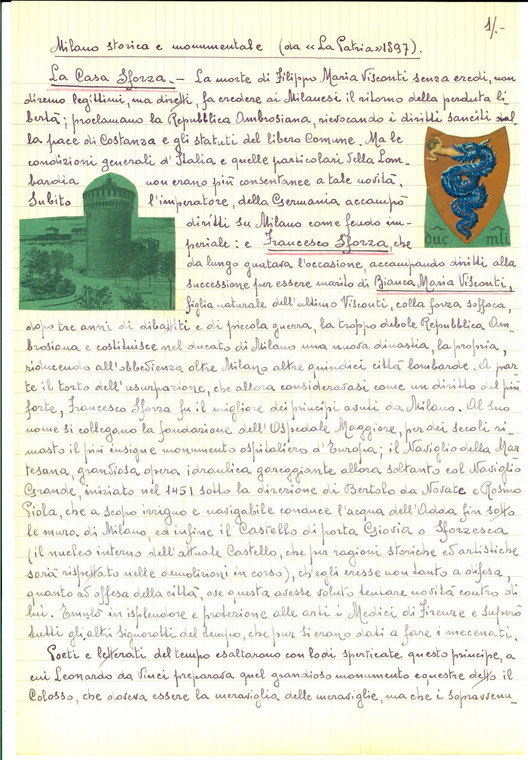 1/.-
Milano storica e monumentale (da «La Patria» 1897).
La Casa Sforza. - La morte di Filippo Maria Visconti senza eredi, non
diremo legittimi, ma diretti, fa credere ai Milanesi il ritorno della perduta li-
bertà; proclamano la Repubblica Ambrosiana, rievocando i diritti sanciti dal
la pace di Costanza e gli statuti del libero Comune. Ma le
condizioni generali d'Italia e quelle particolari della Lom-
bardia non erano più consentanee a tale novità.
Subito l'imperatore, della Germania accampò
diritti su Milano come feudo im-
periale: e Francesco Sforza, che
da lungo guatava l'occasione, accampando diritti alla
successione per essere marito di Bianca Maria Visconti,
figlia naturale dell'ultimo Visconti, colla forza soffoca,
dopo tre anni di dibattiti e di piccola guerra, la troppo debole Repubblica Am-
brosiana e costituisce nel ducato di Milano una nuova dinastia, la propria,
riducendo all'obbedienza oltre Milano altre quindici città lombarde. A par-
te il torto dell'usurpazione, che allora consideravasi come un diritto del più
forte, Francesco Sforza fu il migliore dei principi avuti da Milano. Al suo
nome si collegano la fondazione dell'Ospedale Maggiore, per dei secoli ri-
masto il più insigne monumento ospitaliero d'Europa; il Naviglio della Mar-
tesana, grandiosa opera idraulica gareggiante allora soltanto col Naviglio
Grande, iniziato nel 1451 sotto la direzione di Bertolo da Novate e Rosmo
Piola, che a scopo irriguo e navigabile conduce l'acqua dell'Adda fin sotto
le mura di Milano, ed infine il Castello di porta Giovia o Sforzesca
(il nucleo interno dell'attuale Castello, che per ragioni storiche ed artistiche
sarà rispettato nelle demolizioni in corso), ch'egli eresse non tanto a difesa,
quanto ad offesa della città, ove questa avesse voluto tentare novità contro di
lui. Emulò in isplendore e protezione alle arti i Medici di Firenze e superò
tutti gli altri signorotti del tempo, che pur si erano dati a fare i mecenati.
Poeti e letterati del tempo esaltarono con lodi sperticate questo principe, a
cui Leonardo da Vinci preparava quel grandioso monumento equestre detto il
Colosso, che doveva essere la meraviglia delle meraviglie, ma che i sopravvenu-
duc mli